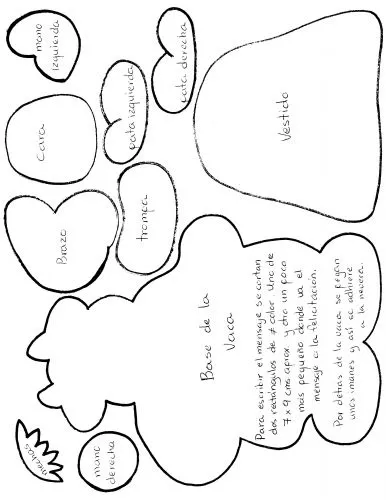 mano
izquierda
cara
pata izquierda
pata derecha
Vestido
Brazo
trompa
Base de la
Vaca
Para escribir el mensaje se cortan
dos retángulos de ≠ color. Uno de
7 x 9 cms aprox y otro un poco
mas pequeño donde va el
mensaje o la felicitación.
Por detras de la vaca se pegan
unos imanes y así se adhiere
a la nevera.
mechas
mano
derecha